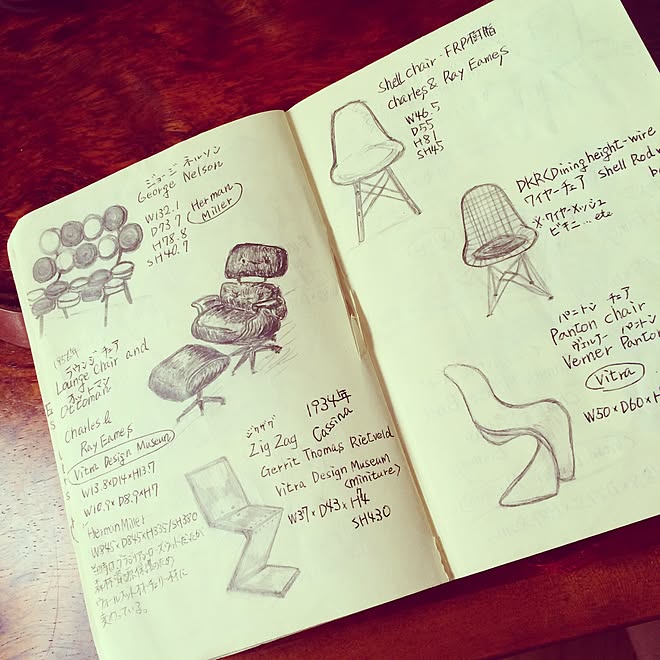 ジョージ ネルソン
George Nelson
W132.1
D73.7
H78.8
SH40.7
Herman
Miller
1956年
ラウンジ チェア
Lounge Chair and
オットマン
Ottoman
Charles &
Ray Eames
Vitra Design Museum
W13.8×D14×H13.7
W10.9×D8.9×H7
Herman Miller
W845×D845×H835/SH380
ジグザグ
Zig Zag
1934年
Cassina
Gerrit Thomas Rietveld
Vitra Design Museum
(miniture)
W37×D43×H74
SH430
Shell Chair・FRP樹脂
Charles & Ray Eames
W46.5
D55
H81
SH45
DKR(Dining height-wire
ワイヤーチェア Shell Rod
※ワイヤーメッシュ
ビキニ...etc
パントン チェア
Panton Chair
ヴェルナー パントン
Verner Panton
Vitra
W50×D60×H